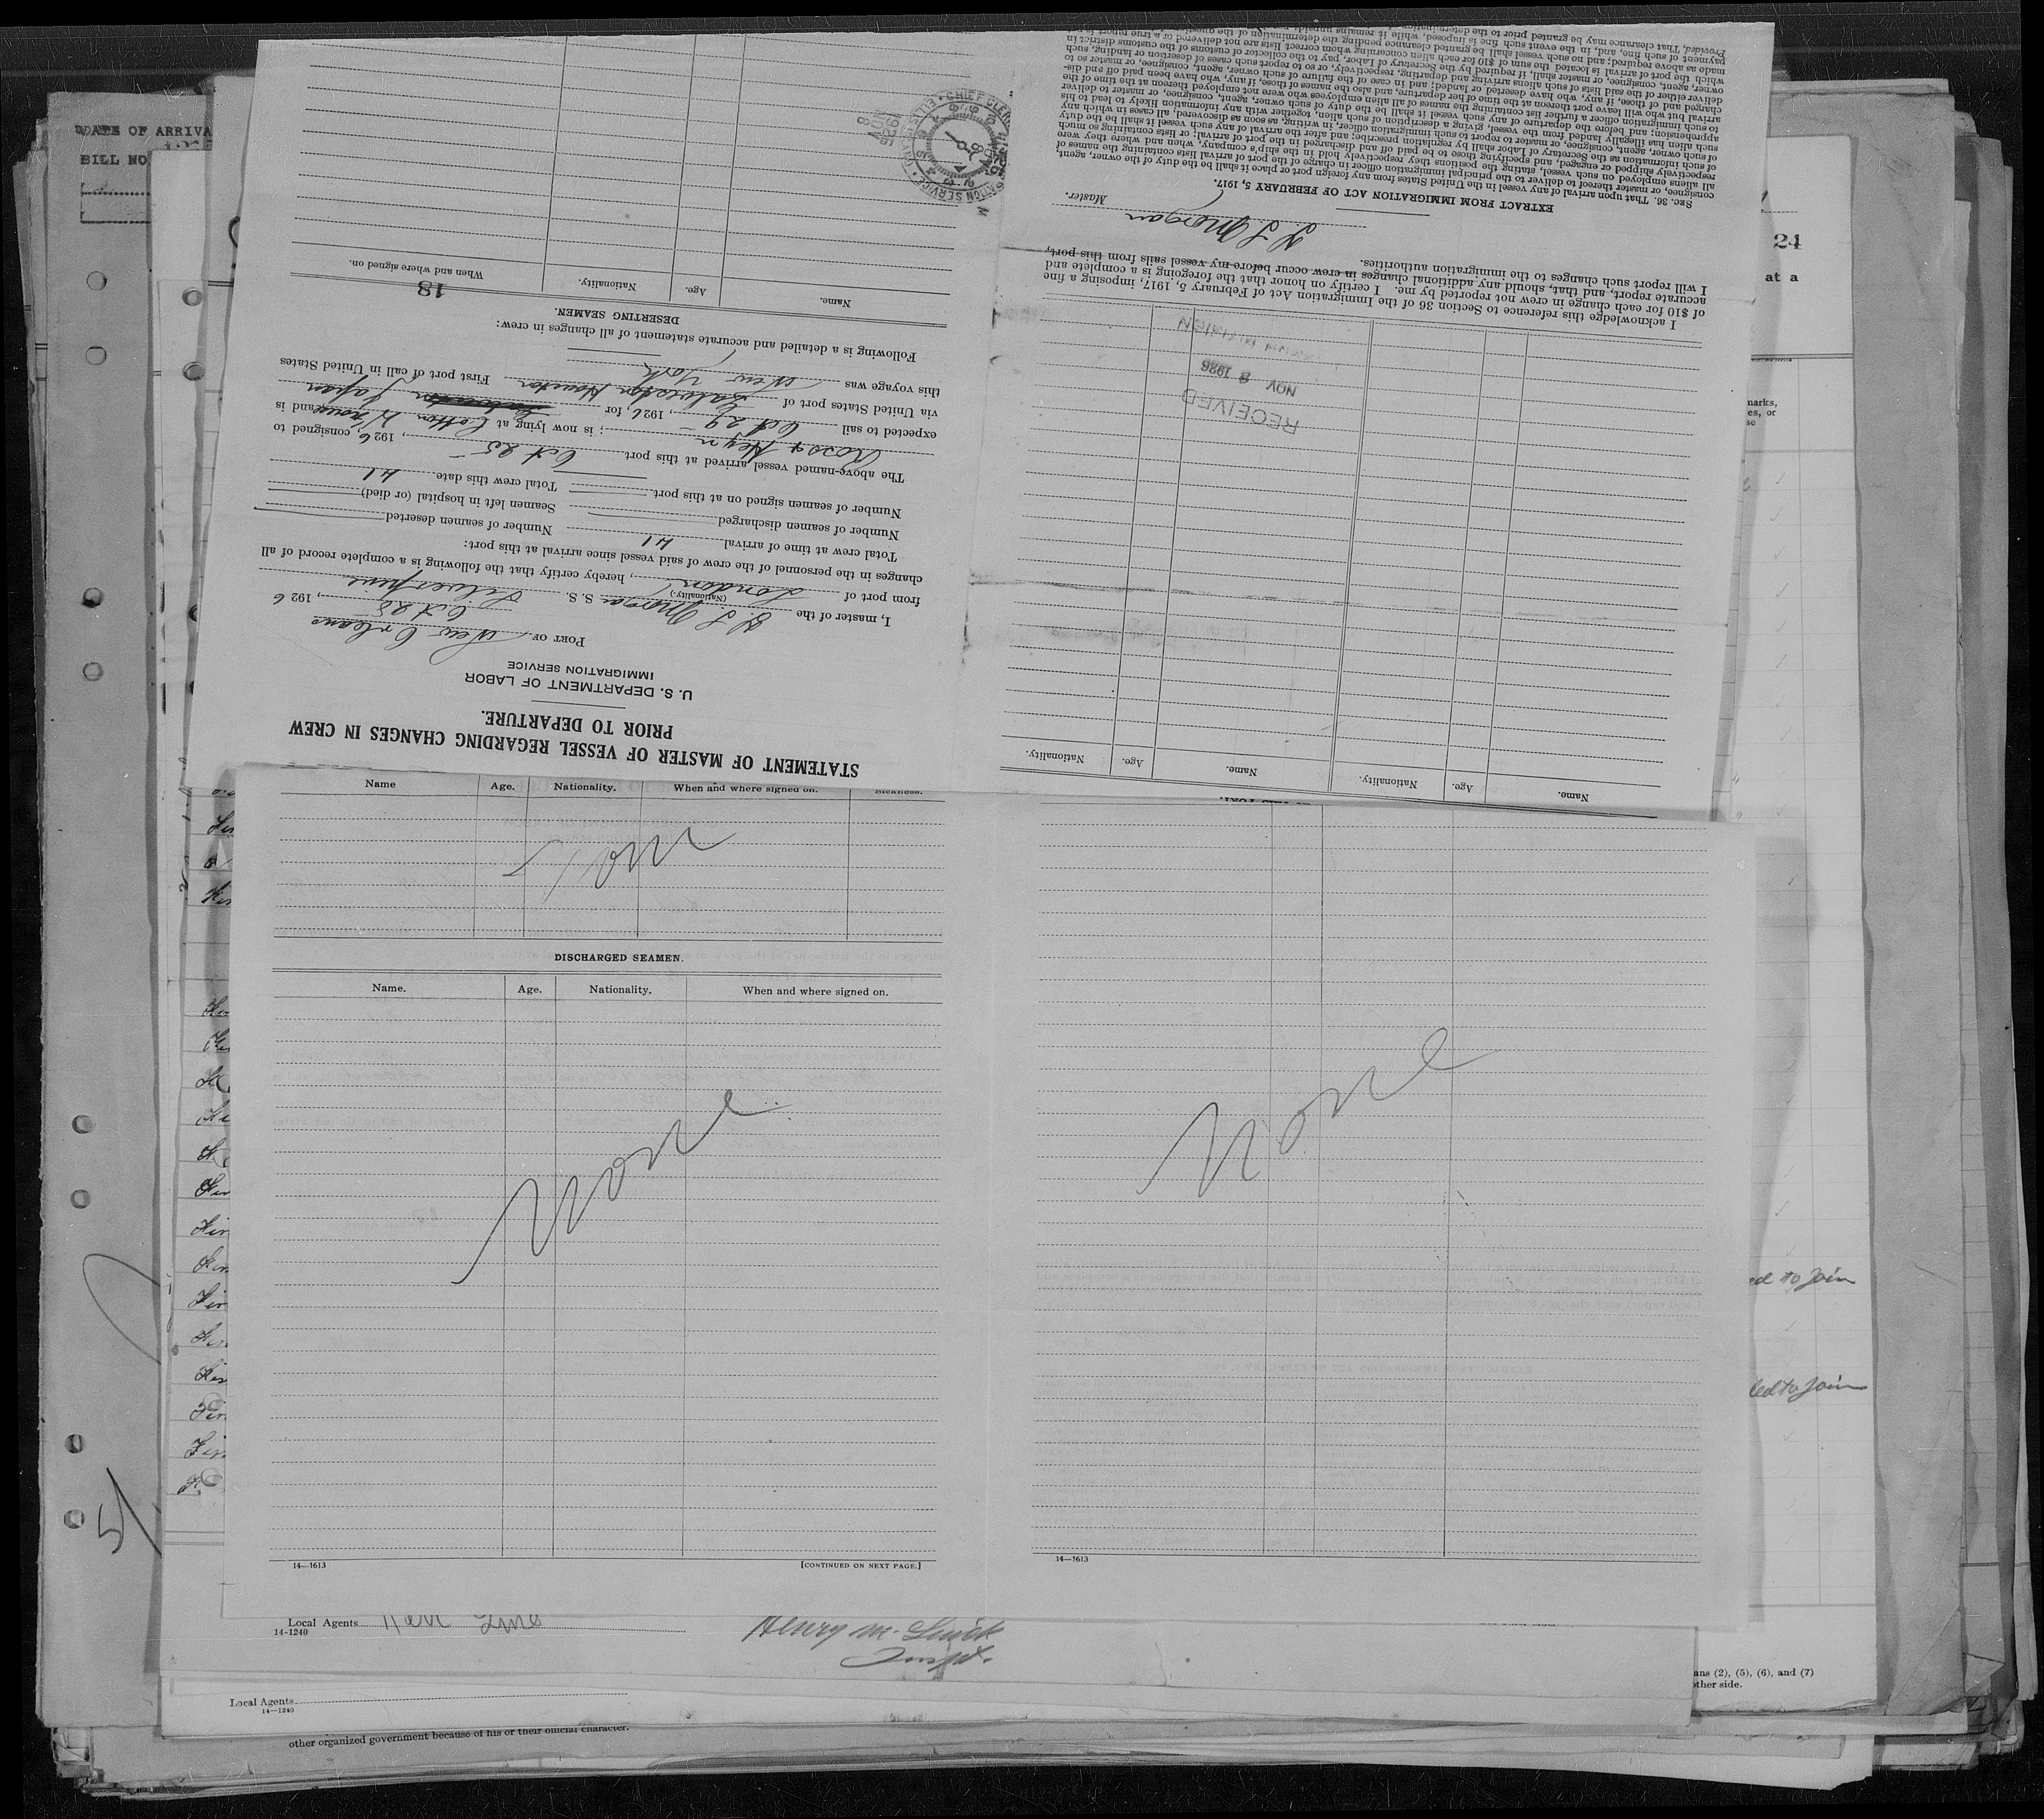 STATEMENT OF MASTER OF VESSEL REGARDING CHANGES IN CREW
PRIOR TO DEPARTURE.
U. S. DEPARTMENT OF LABOR
IMMIGRATION SERVICE
PORT OF New Orleans
Oct 25, 1926
I, master of the S. S. Silverpine
(Nationality.)
from port of London, hereby certify that the following is a complete record of all
changes in the personnel of the crew of said vessel since arrival at this port:
Total crew at time of arrival 41 Number of seamen deserted
Number of seamen discharged Seamen left in hospital (or died)
Number of seamen signed on at this port Total crew this date 41
The above-named vessel arrived at this port Oct 25, 1926, consigned to
Ross & Heyn; is now lying at Cotton W'house and is
expected to sail Oct 29, 1926, for Japan
via United States port of Galveston Houston First port of call in United States
this voyage was New York
Following is a detailed and accurate statement of all changes in crew:
DESERTING SEAMEN.
18
Name. Age. Nationality. When and where signed on.
ELLIS CHIEF CLERK
NOV 8
1926
Name. Age. Nationality. Name. Age. Nationality.
RECEIVED
NOV 8 1926
I acknowledge this reference to Section 36 of the Immigration Act of February 5, 1917, imposing a fine
of $10 for each change in crew not reported by me. I certify on honor that the foregoing is a complete and
accurate report, and that, should any additional changes in crew occur before my vessel sails from this port,
I will report such changes to the immigration authorities.
Morgan
Master.
EXTRACT FROM IMMIGRATION ACT OF FEBRUARY 5, 1917.
SEC. 36. That upon arrival of any vessel in the United States from any foreign port or place it shall be the duty of the owner, agent,
consignee, or master thereof to deliver to the principal immigration officer in charge of the port of arrival lists containing the names of
all aliens employed on such vessel, stating the positions they respectively hold in the ship's company, when and where they were
respectively shipped or engaged, and specifying those to be paid off and discharged in the port of arrival; or lists containing so much
of such information as the Secretary of Labor shall by regulation prescribe; and after the arrival of any such vessel it shall be the duty
of such owner, agent, consignee, or master to report to such immigration officer, in writing, as soon as discovered, all cases in which any
such alien has illegally landed from the vessel, giving a description of such alien, together with any information likely to lead to his
apprehension; and before the departure of any such vessel it shall be the duty of such owner, agent, consignee, or master to deliver
to such immigration officer a further list containing the names of all alien employees who were not employed thereon at the time of the
arrival but who will leave port thereon at the time of her departure, and also the names of those, if any, who have been paid off and dis-
charged and of those, if any, who have deserted or landed; and in case of the failure of such owner, agent, consignee, or master so to
deliver either of the said lists of such aliens arriving and departing, respectively, or so to report such cases of desertion or landing, such
owner, agent, consignee, or master shall, if required by the Secretary of Labor, pay to the collector of customs of the customs district in
which the port of arrival is located the sum of $10 for each alien concerning whom correct lists are not delivered or a true report is not
made as above required; and no such vessel shall be granted clearance pending the determination of the question
payment of such fine, and, in the event such fine is imposed, while it remains unpaid
Provided, That clearance may be granted prior to the determination
Name Age. Nationality. When and where signed on. Sickness.
None
DISCHARGED SEAMEN.
Name. Age. Nationality. When and where signed on.
None
14—1613 [CONTINUED ON NEXT PAGE.]
None
14—1613
DATE OF ARRIVA
BILL NO
24
at a
narks,
es, or
se
ed to join
led to join
5
Local Agents Line
14-1240
Henry M.
Local Agents
14—1240
ans (2), (5), (6), and (7)
other side.
other organized government because of his or their official character.